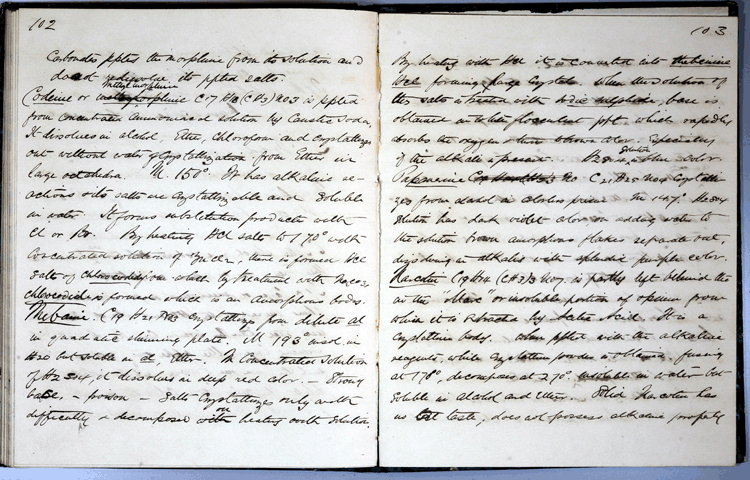 102
Carbonates ppted the morphine from its solution and
do not redissolve its ppted salts.
Methylmorphine
Codeine or C17 H18 (CH3) NO3 is ppted
from concentrated Ammoniacal solution by Caustic Soda.
It dissolves in alcohol, Ether, Chloroform and Crystallizes
out without water of Crystallization from Ether in
large octahedra. M 150°. It has alkaline re-
actions its salts are Crystallizable and Soluble
in water. It forms substitution products with
Cl or Br. By heating HCl salts to 170° with
Concentrated solution of ZnCl2, there is formed HCl
Salt of which by treatment with Na2CO3
is formed which is an Amorphous body.
Thebaine. C19 H21 NO3 Crystallizes from dilute al
in quadratic shining plate. M 193 insol. in
H2O but soluble in al, Ether. In Concentrated Solution
of H2SO4, it dissolves in deep red color. — Strong
base, — poison — Salts Crystallizes only with
difficulty & decomposed on heating with solution.
103
By heating with HCl it is converted into thebenine
HCl forming large Crystals. When the solution of
this salts is treated with sulphide, base is
obtained white flocculent ppt. which rapidly
absorbs the oxygen & turns brown color. Especially
Solution
if the alkali is present. H2SO4 blue color
Papaverine C21 H21 NO4 Crystalli-
zes from alcohol in colorless prisms. M 147°. H2SO4
Solution has dark violet color on adding water to
the solution brown amorphous flakes separate out,
dissolving in alkalies with splendid purple color.
Narcotin C19 H14 (CH3)3 NO7. is partly left behind
in the Marc or insoluble portion of opium from
which it is extracted by Acetic Acid. It is a
Crystalline body. When ppted with the alkaline
reagents, white Crystalline powder is obtained, fusing
at 170°, decomposes at 270°. in water but
Soluble in alcohol and Ether. Solid Narcotin has
no taste, does not possess alkaline property